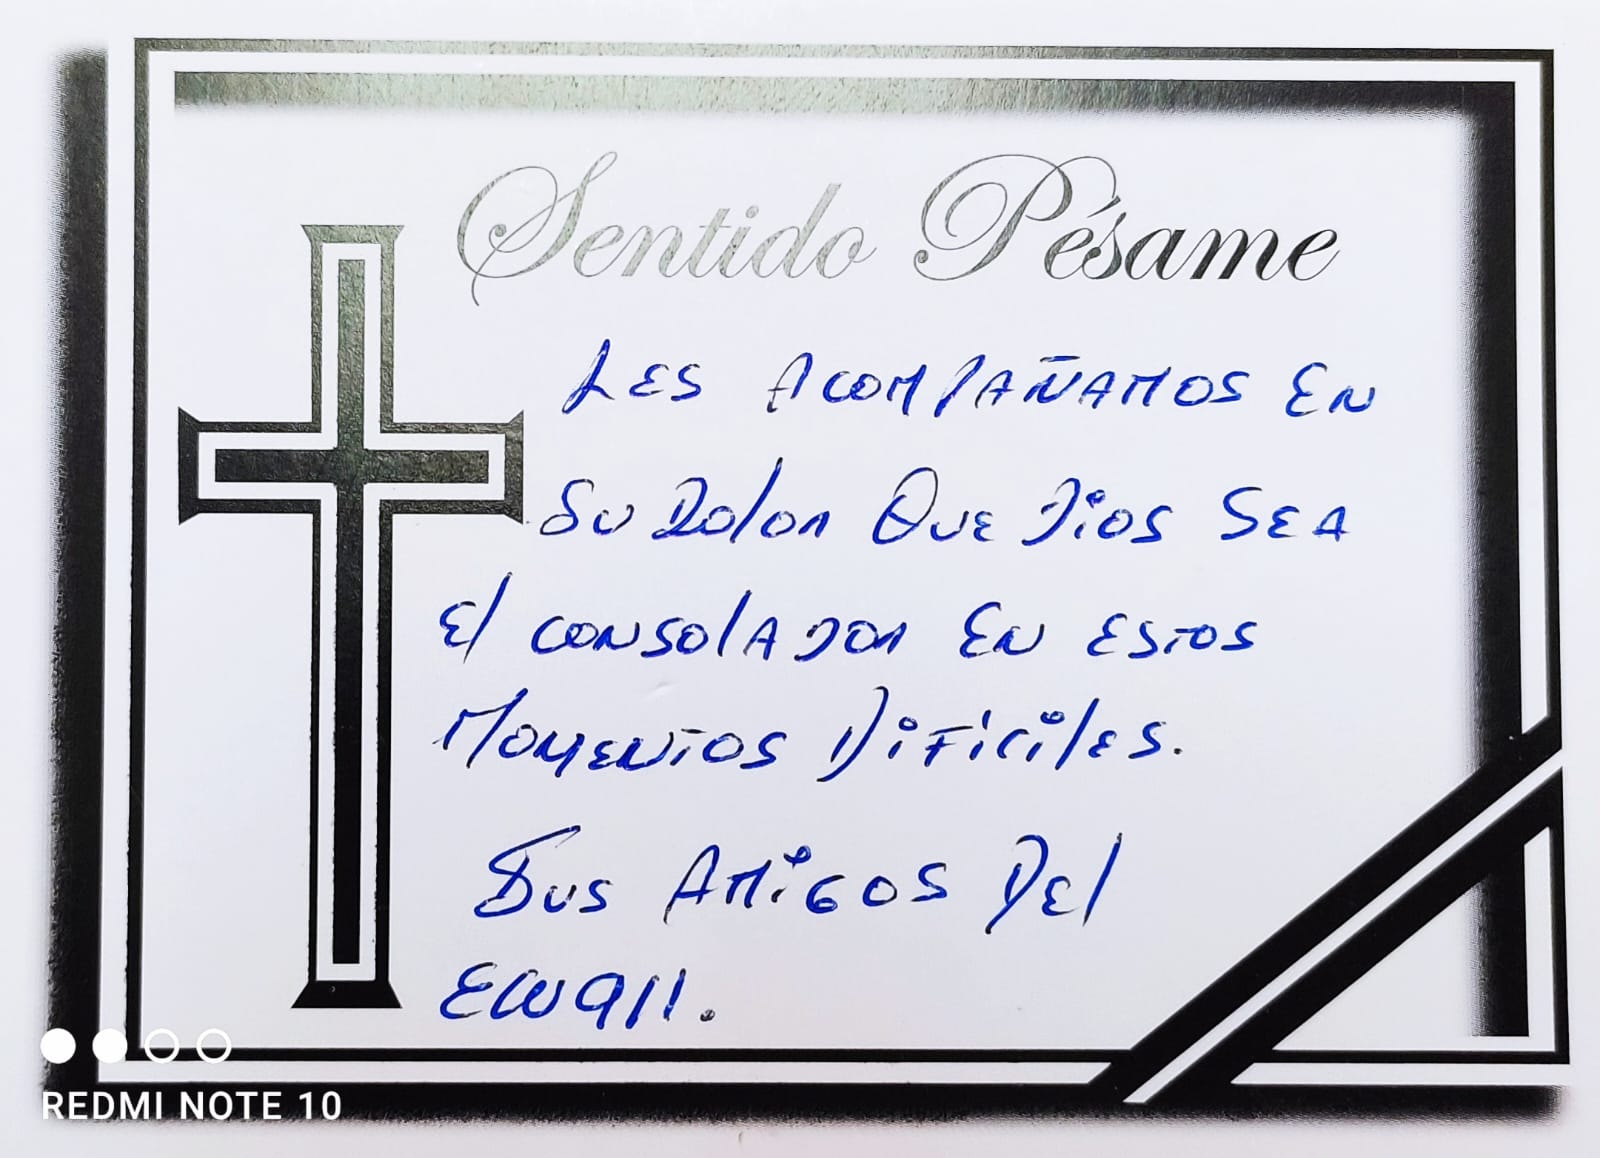 Sentido Pésame
LES ACOMPAÑAMOS EN
SU DOLOR QUE DIOS SEA
El CONSOLADOR EN ESTOS
MOMENTOS DIFíCILES.
SUS AMIGOS DEL
ECU911.
REDMI NOTE 10